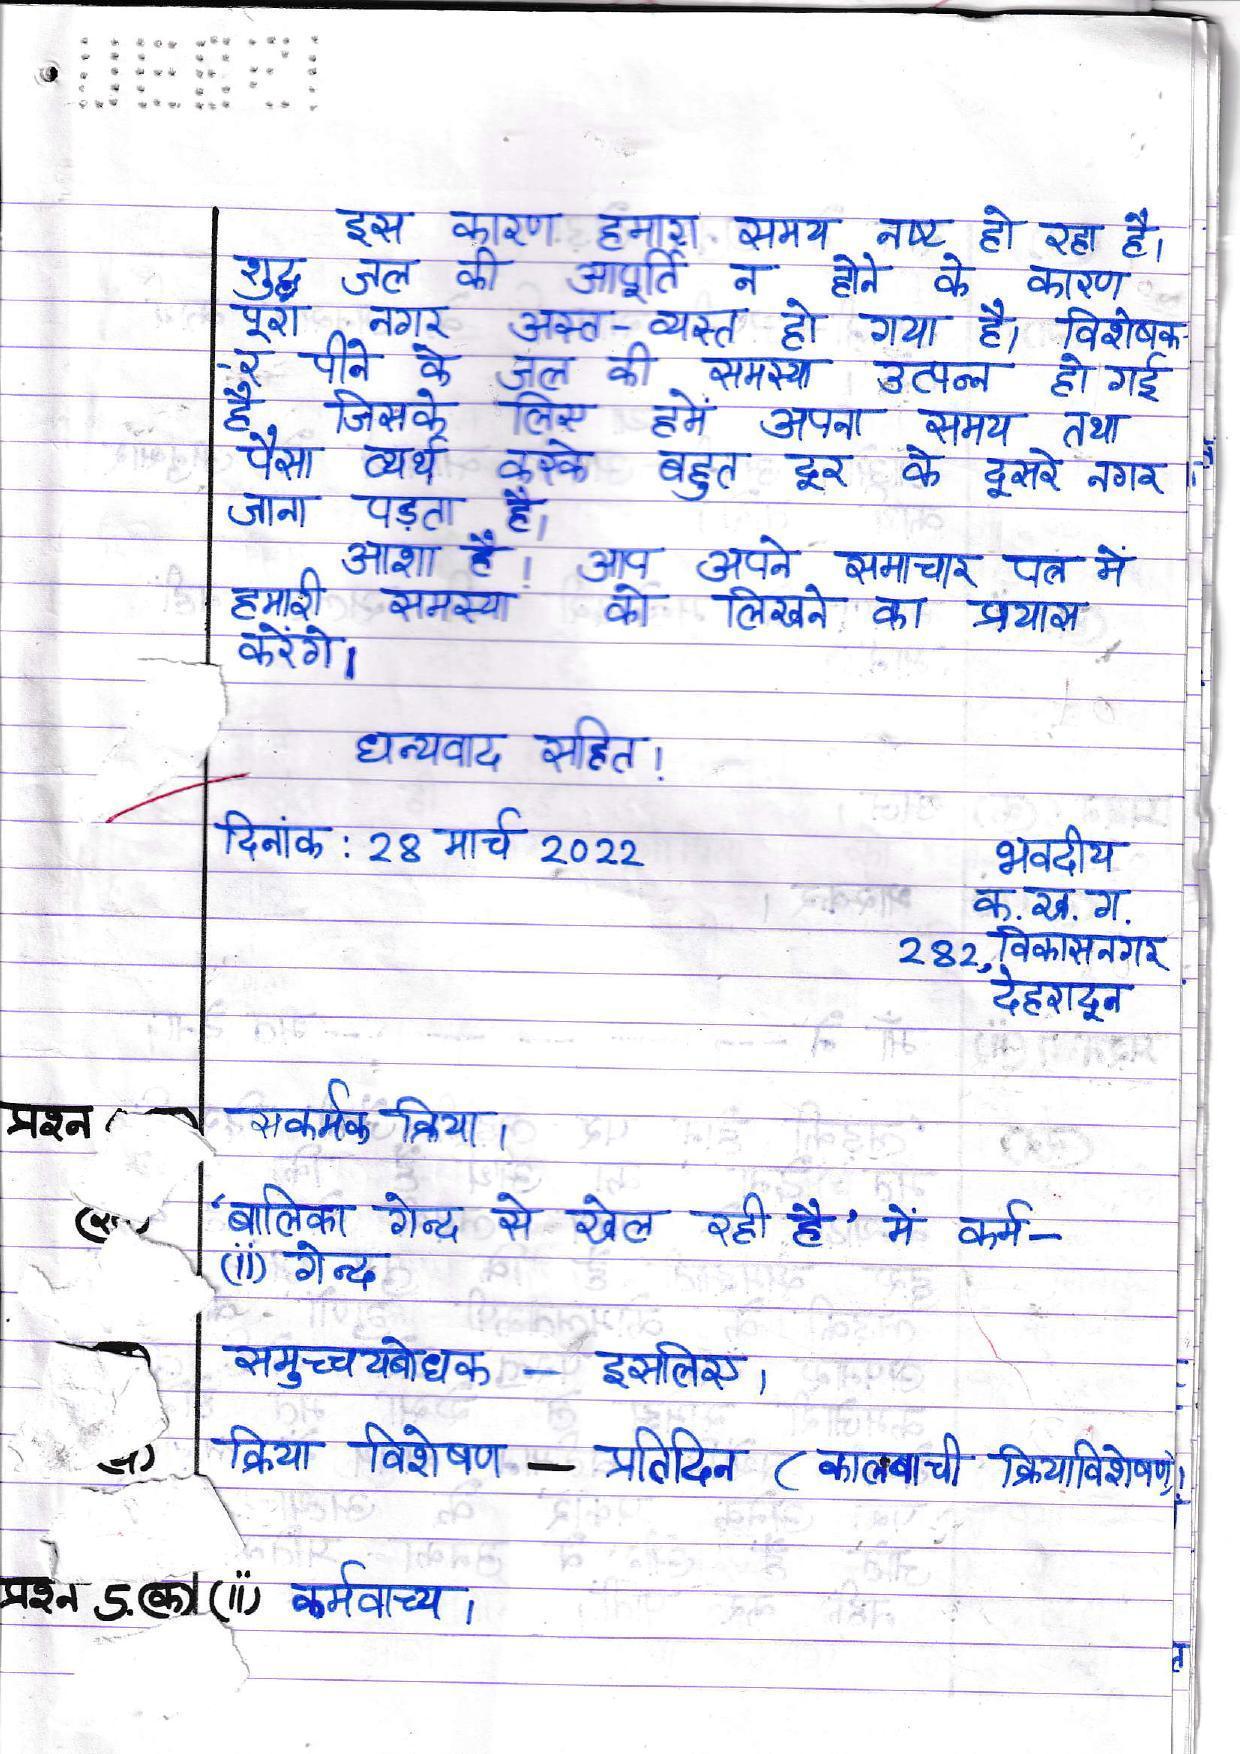 इस कारण हमारा समय नष्ट हो रहा है।
शुद्ध जल की आपूर्ति न होने के कारण
पूरा नगर अस्त-व्यस्त हो गया है। विशेषक-
-र पीने के जल की समस्या उत्पन्न हो गई
है जिसके लिए हमें अपना समय तथा
पैसा व्यर्थ करके बहुत दूर के दूसरे नगर
जाना पड़ता है।
आशा है! आप अपने समाचार पत्र में
हमारी समस्या को लिखने का प्रयास
करेंगे।
धन्यवाद सहित!
दिनांक : 28 मार्च 2022
भवदीय
क. ख. ग.
282, विकासनगर
देहरादून
प्रश्न सकर्मक क्रिया।
'बालिका गेन्द से खेल रही है' में कर्म-
(ii) गेन्द
समुच्चयबोधक - इसलिए।
क्रिया विशेषण - प्रतिदिन (कालबाची क्रियाविशेषण)।
प्रश्न 5.(क) (ii) कर्मवाच्य।